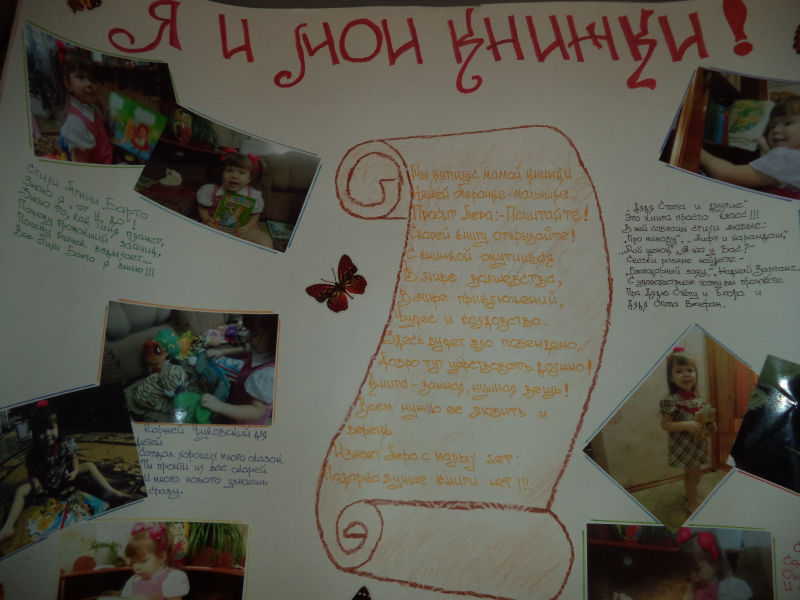 Я и мои книжки!
Стихи Агнии Барто
Знаю я от и до!
Знаю то, как Таня плачет,
Почему промокший зайчик,
Почему бычок вздыхает...
Все стихи Барто я знаю!!!
Мы купили с мамой книжки
Нашей Лерочке-малышке.
Просит Лера:-Почитайте!
Скорей книгу открывайте!
С книжкой очутишься
В мире волшебства,
В мире приключений,
Чудес и колдовства.
Здесь будет зло побеждено,
Добро тут царствовать должно!
Книга-ценная, нужная вещь!
Всем нужно ее любить и
беречь.
И знает Лера с малых лет:
Подарка лучше книги нет!!!
„Дядя Степа и другие"
Это книга просто класс!!!
В ней собраны стихи любые:
„Про мимозу", „Лифт и карандаш",
„Мой щенок", „А что у Вас?"
Сказки разные найдете-
С удовольствием поэму вы прочтете
Про Дядю Стёпу и Егора и
Дядя Степа Ветеран.
Корней Чуковский для
детей
Создал хороших много сказок
Ты прочти их все скорей
И много нового узнаешь
сразу.